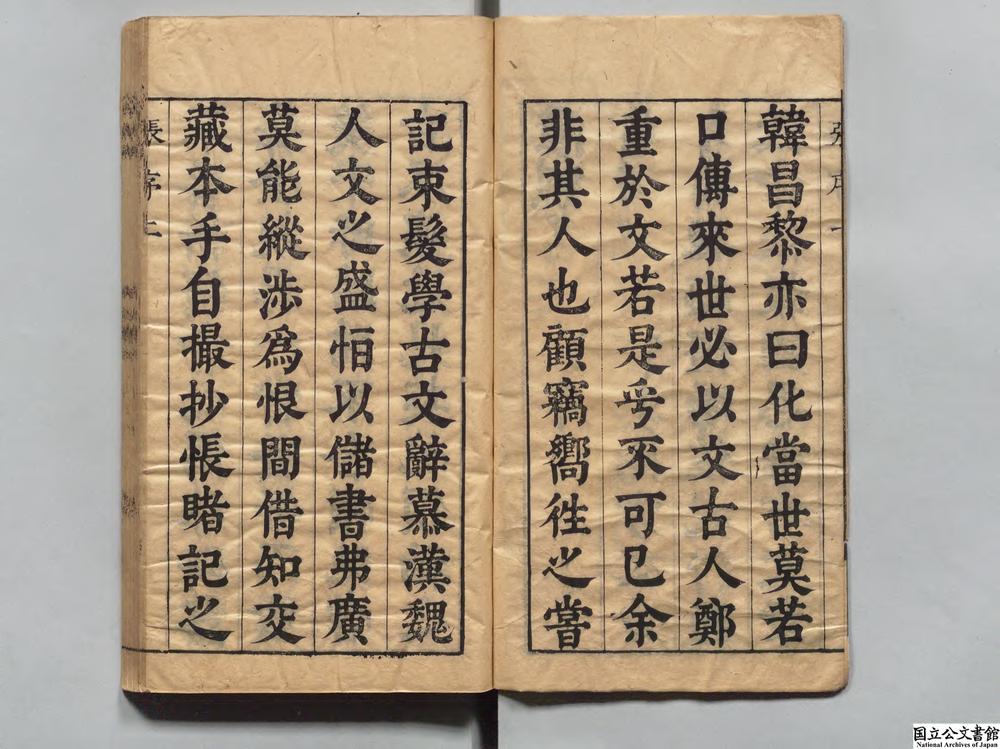 韓昌黎亦曰化當世莫若
口傳來世必以文古人鄭
重於文若是乎不可已余
非其人也顧竊嚮徃之嘗
記束髮學古文辭慕漢魏
人文之盛怕以儲書弗廣
莫能縱涉爲恨間借知交
藏本手自撮抄悵睹記之
張 序 上
国立公文書館
National Archives of Japan